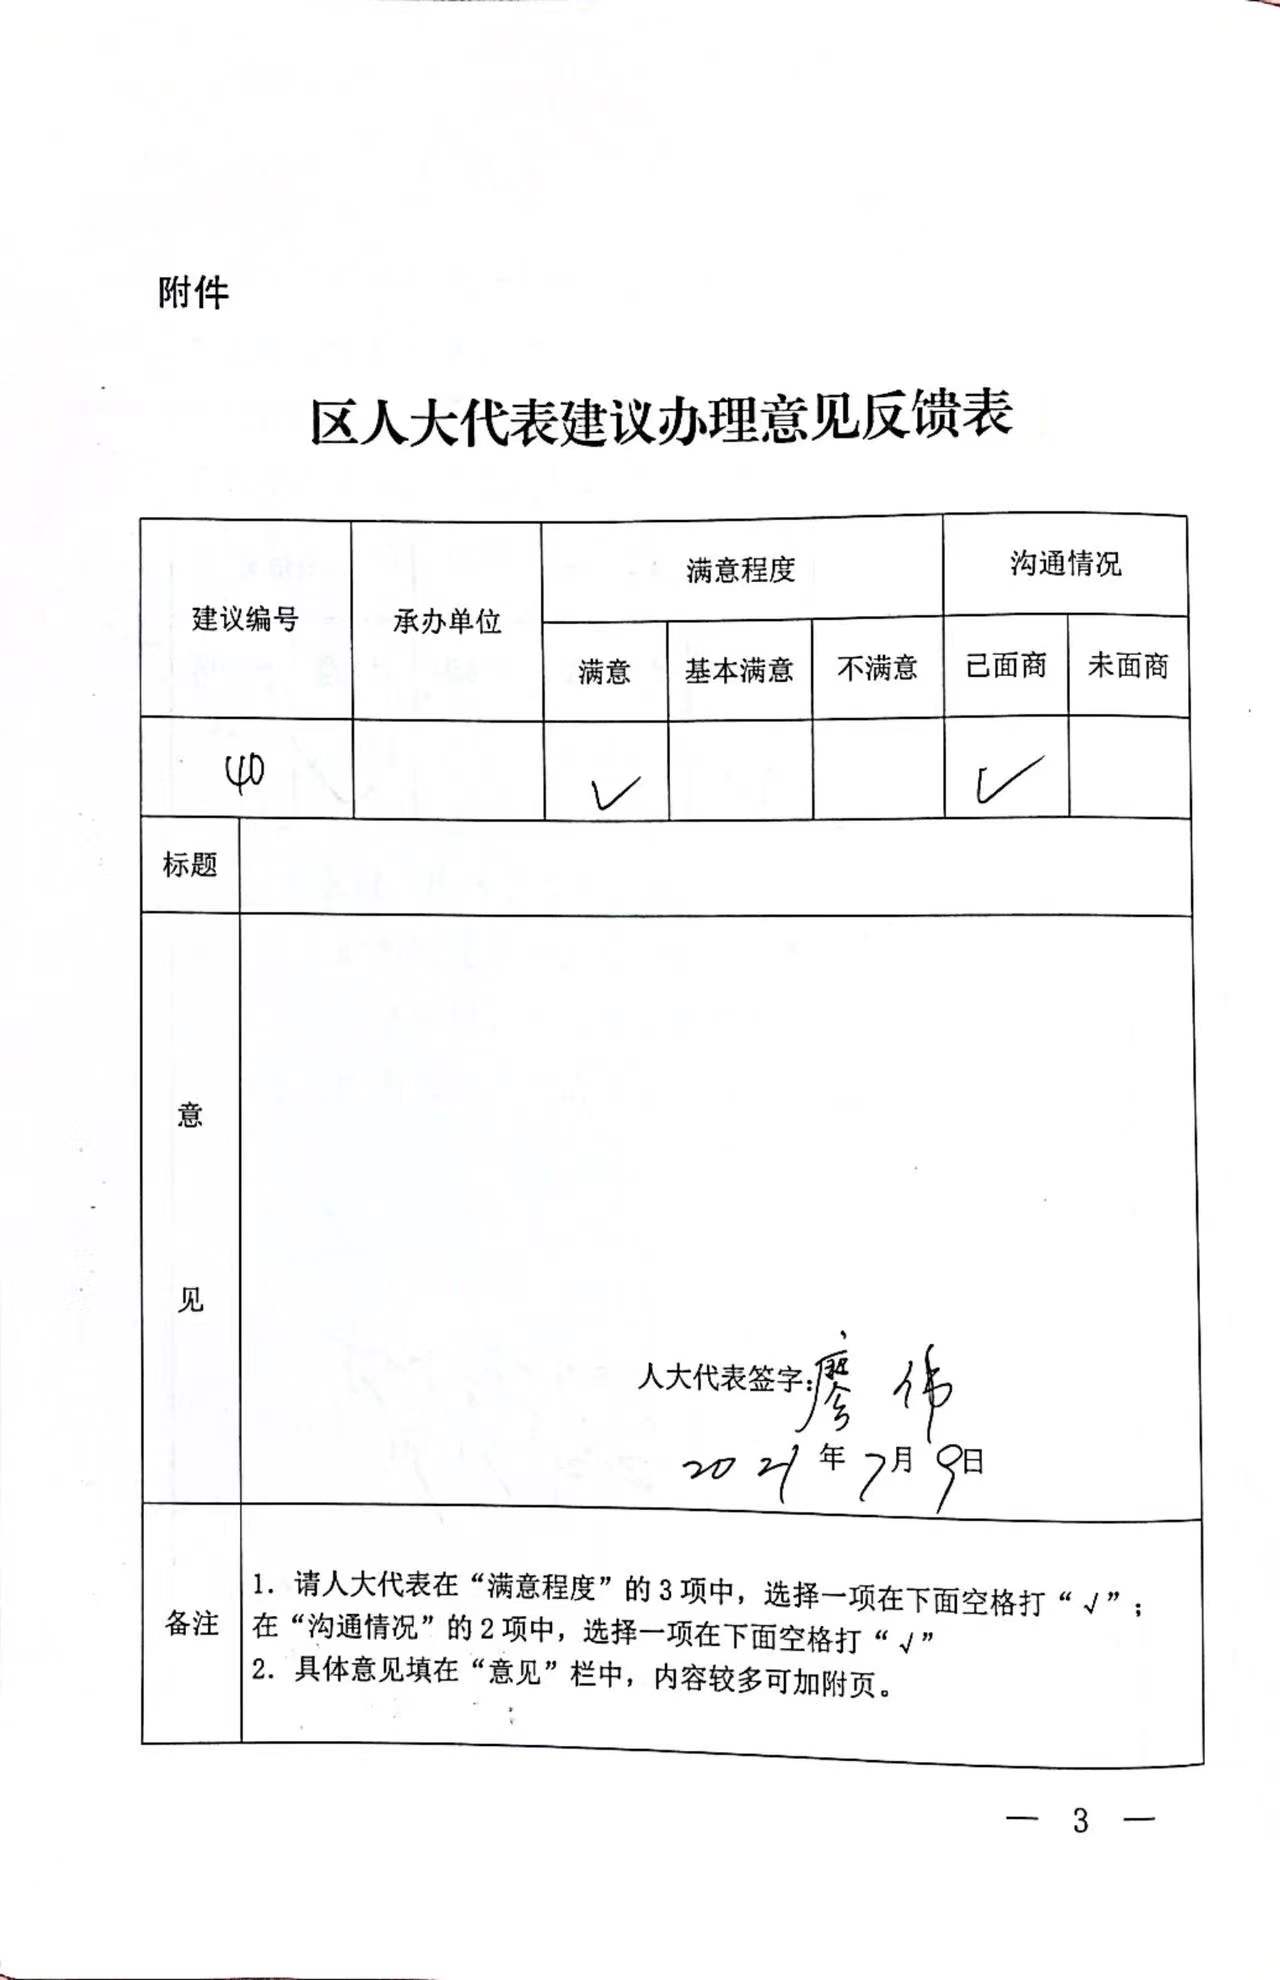 附件
区人大代表建议办理意见反馈表
建议编号 承办单位 满意程度 沟通情况
满意 基本满意 不满意 已面商 未面商
40 ✓ ✓
标题
意
见
人大代表签字：廖伟
2021年7月9日
备注
1. 请人大代表在“满意程度”的3项中，选择一项在下面空格打“√”；
在“沟通情况”的2项中，选择一项在下面空格打“√”
2. 具体意见填在“意见”栏中，内容较多可加附页。
— 3 —